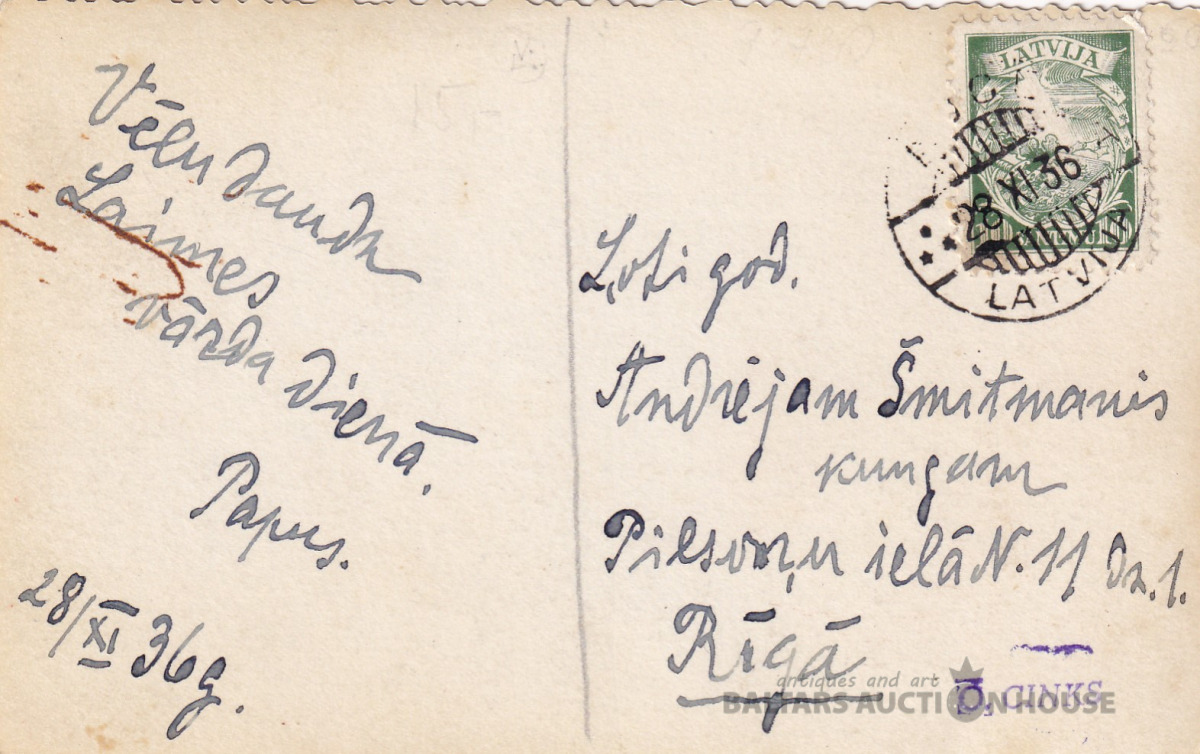 Vēlu daudz
Laimes
vārda dienā.
Papus.
28/XI 36g.
15,-
LATVIJA
28 XI 36
LATVIJA
Ļoti god.
Andrējam Šmitmanis
kungam
Pilsoņu ielā N. 11 dz. 1.
Rīgā
CINKS
antiques and art
BALTARS AUCTION HOUSE